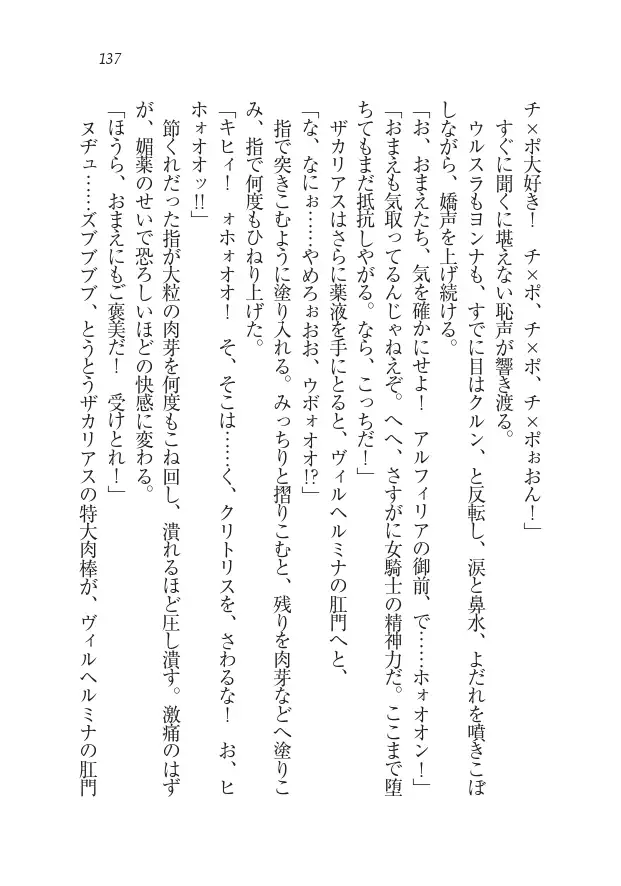 137
チ×ポ大好き！　チ×ポ、チ×ポ、チ×ポぉおん！」
すぐに聞くに堪えない恥声が響き渡る。
ウルスラもヨンナも、すでに目はクルン、と反転し、涙と鼻水、よだれを噴きこぼ
しながら、嬌声を上げ続ける。
「お、おまえたち、気を確かにせよ！　アルフィリアの御前、で……ホォオオン！」
「おまえも気取ってるんじゃねえぞ。へへ、さすがに女騎士の精神力だ。ここまで堕
ちてもまだ抵抗しやがる。なら、こっちだ！」
ザカリアスはさらに薬液を手にとると、ヴィルヘルミナの肛門へと、
「な、なにぉ……やめろぉおお、ウボォオオ!?」
指で突きこむように塗り入れる。みっちりと摺りこむと、残りを肉芽などへ塗りこ
み、指で何度もひねり上げた。
「キヒィ！　ォホォオオ！　そ、そこは……く、クリトリスを、さわるな！　お、ヒ
ホォオオッ!!」
節くれだった指が大粒の肉芽を何度もこね回し、潰れるほど圧し潰す。激痛のはず
が、媚薬のせいで恐ろしいほどの快感に変わる。
「ほうら、おまえにもご褒美だ！　受けとれ！」
ヌヂュ……ズブブブブ、とうとうザカリアスの特大肉棒が、ヴィルヘルミナの肛門